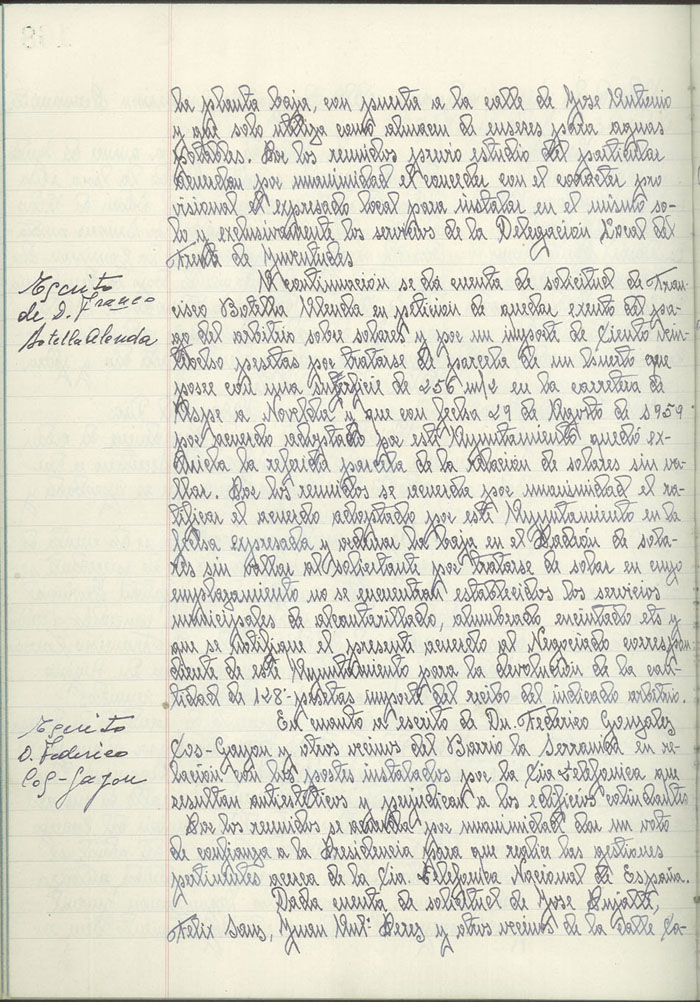 la planta baja, con puerta a la calle de Jose Antonio
y que solo utiliza como almacen de enseres para aguas
potables. Por los reunidos previo estudio del particular
acuerdan por unanimidad el conceder con el carácter pro
visional el expresado local para instalar en el mismo so-
lo y exclusivamente los servicios de la Delegacion Local del
Frente de Juventudes
Escrito
de D. Franco
Botella Alenda
A continuacion se da cuenta de solicitud de Fran-
cisco Botella Alenda en peticion de quedar exento del pa-
go del arbitrio sobre solares y por un importe de Ciento vein-
tiocho pesetas por tratarse de parcela de un huerto que
posee con una superficie de 256 m/2 en la carretera de
Aspe a Novelda y que con fecha 29 de Agosto de 1959
por acuerdo adoptado por este Ayuntamiento quedó ex-
cluida la referida parcela de la relación de solares sin va-
llar. Por los reunidos se acuerda por unanimidad el ra-
tificar el acuerdo adoptado por este Ayuntamiento en la
fecha expresada y la baja en el Padrón de sola-
res sin vallar al solicitante por tratarse de solar en cuyo
emplazamiento no se encuentran establecidos los servicios
municipales de alcantarillado, alumbrado encintado etc y
que se notifique el presente acuerdo al Negociado correspon
diente de este Ayuntamiento para la devolución de la can-
tidad de 128- pesetas importe del recibo del indicado arbitrio.
Escrito
D. Federico
Cos-Gayon
En cuanto a escrito de Dn. Federico Gonzalez
Cos-Gayon y otros vecinos del Barrio la Serranica en re-
lación con los postes instalados por la Cia Telefonica que
resultan antiestéticos y perjudican a los edificios colindantes
Por los reunidos se acuerda por unanimidad dar un voto
de confianza a la Presidencia para que realice las gestiones
pertinentes acerca de la Cia. Telefonica Nacional de España.
Dada cuenta de solicitud de Jose Pujalte,
Felix Sans, Juan Antº Peres y otros vecinos de la Calle Ca-